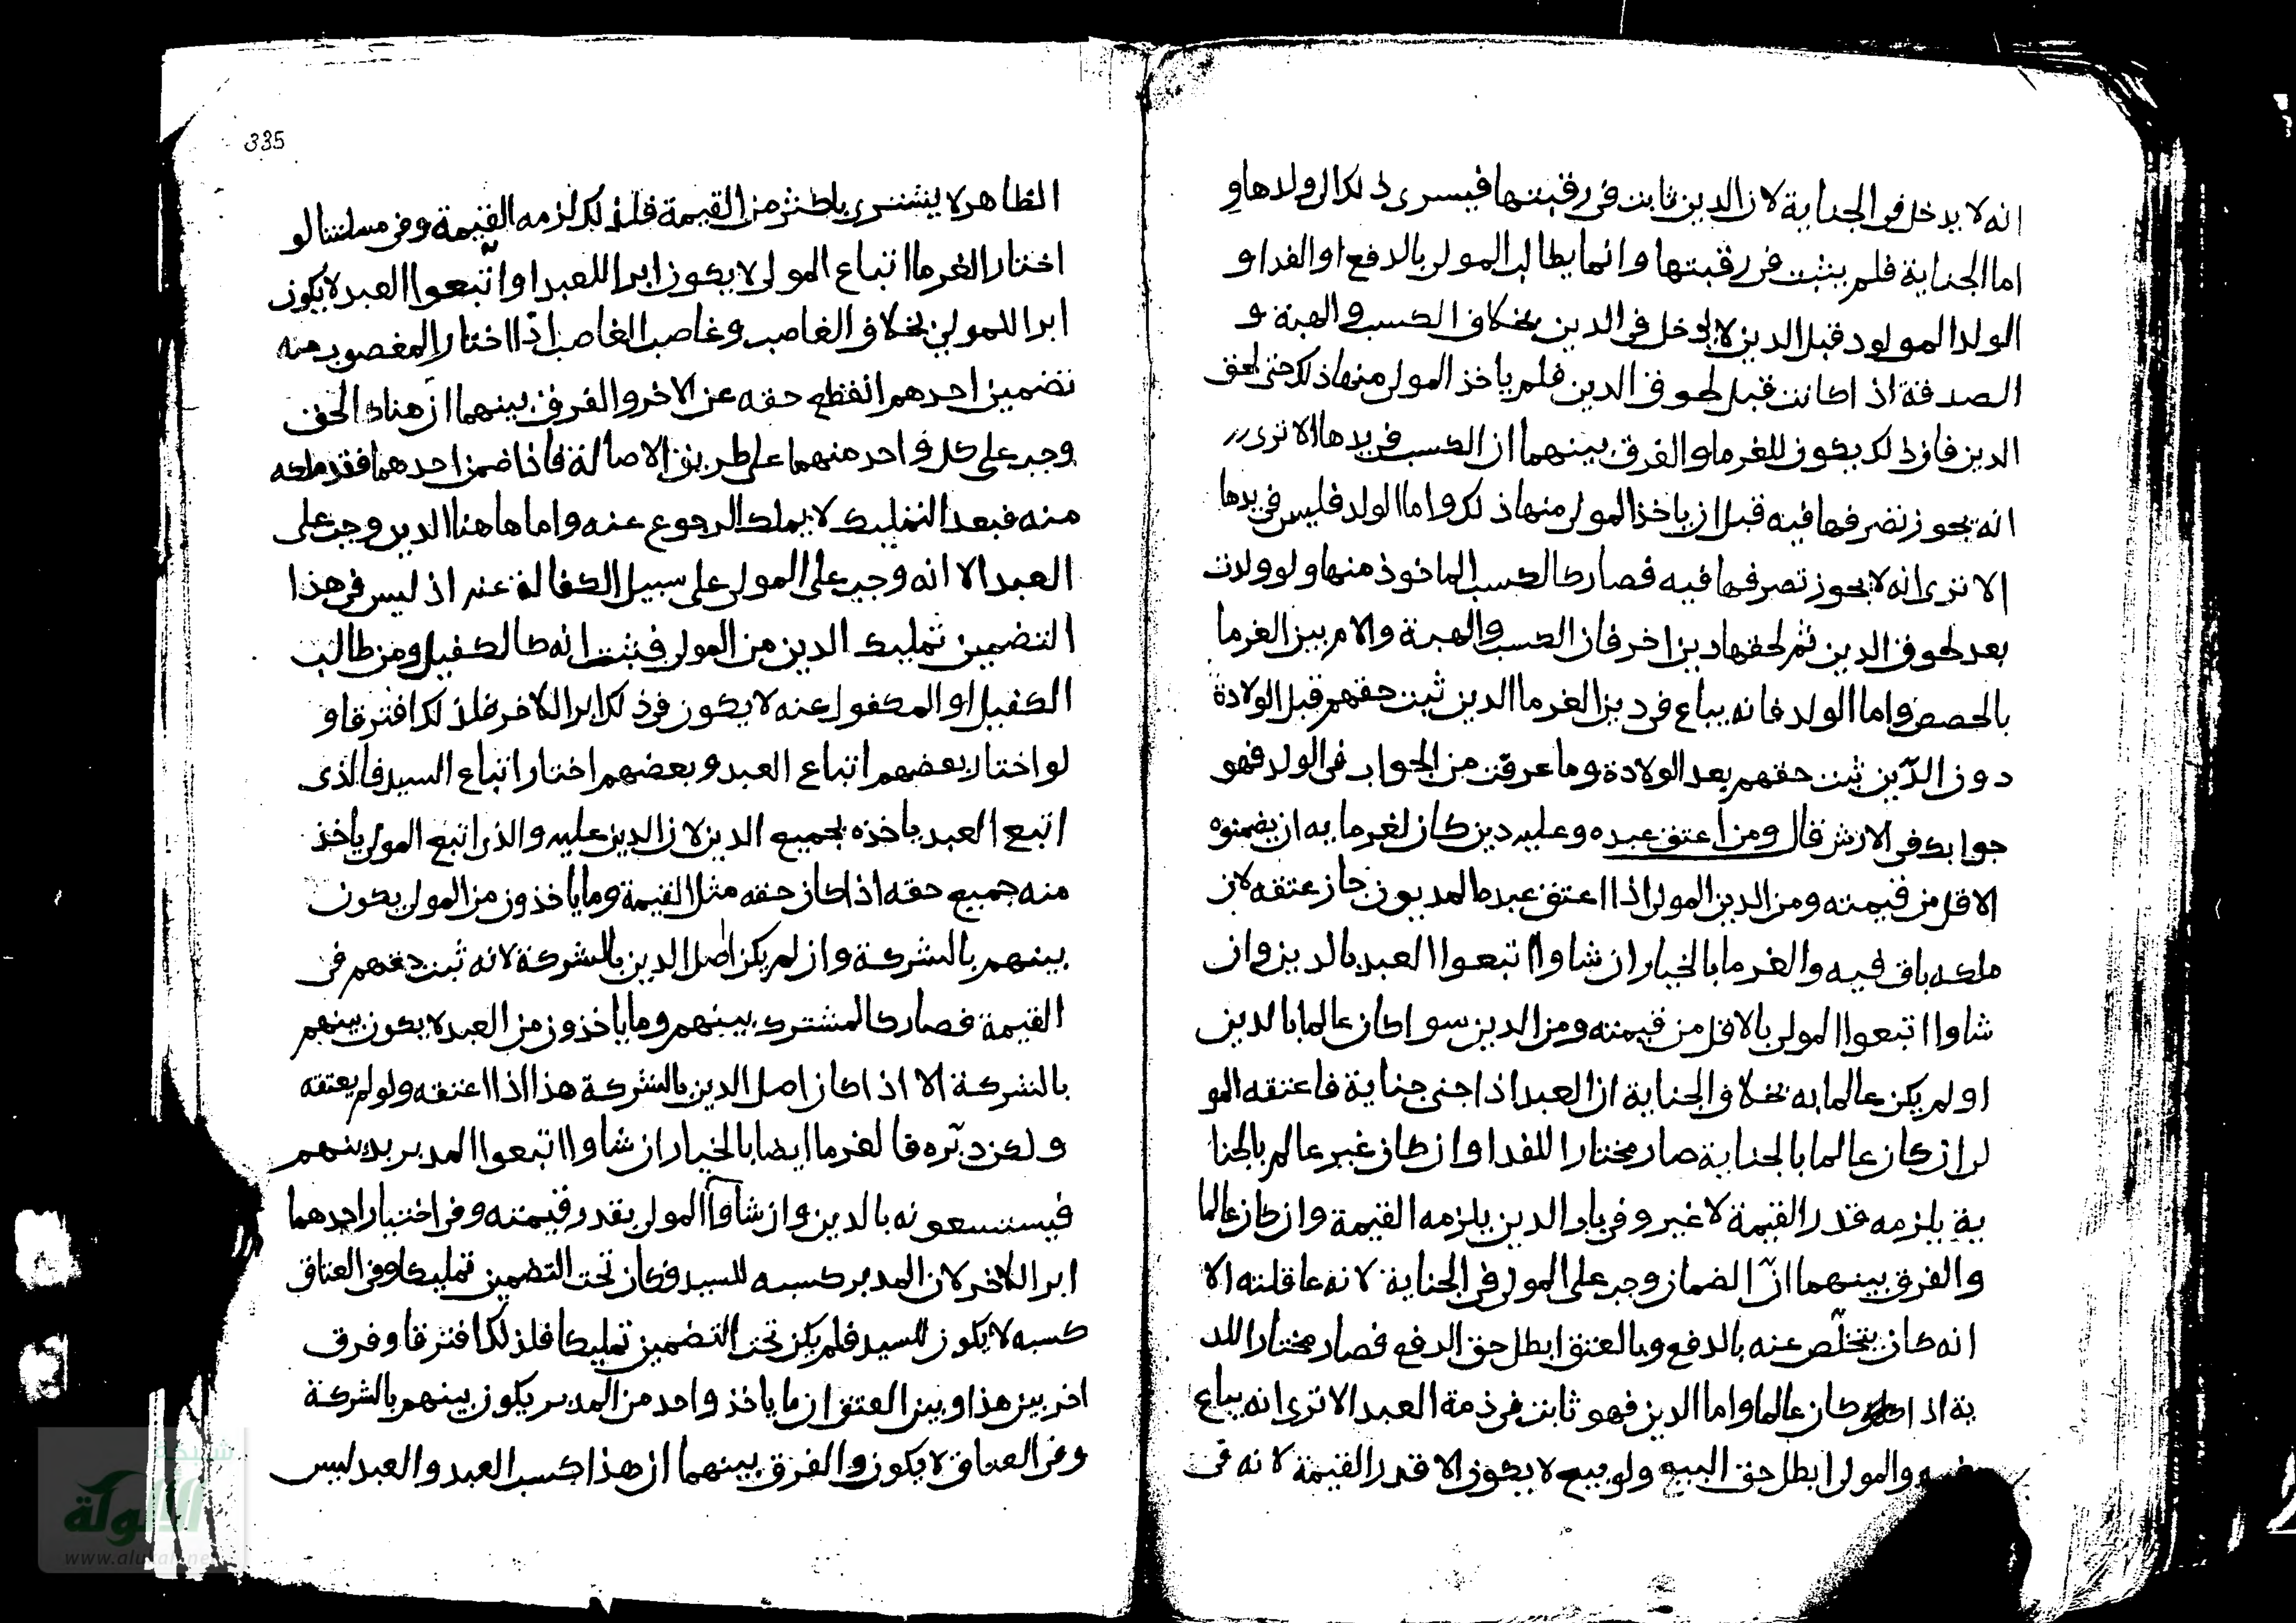 انه لا يدخل في الجناية لان الدين ثابت في رقبتها فيسرى ذلك الى ولدها و
اما الجناية فلم يثبت في رقبتها وانما يطالب المولى بالدفع او الفدا و
الولد المولود قبل الدين لا يدخل في الدين بخلاف الكسب والهبة و
الصدقة اذا كانت قبل لحوق الدين فلم ياخذ المولى منها ذلك حتى لحق
الدين فان ذلك يكون للغرما والفرق بينهما ان الكسب في يدها الا ترى
انه يجوز تصرفها فيه قبل ان ياخذ المولى منها ذلك واما الولد فليس في يدها
الا ترى انه لا يجوز تصرفها فيه فصار كالكسب الماخوذ منها ولو ولدت
بعد لحوق الدين ثم لحقها دين اخر فان الكسب والهبة والام بين الغرما
بالحصص واما الولد فانه يباع في دين الغرما الدين ثبت حقهم قبل الولادة
دون الدين ثبت حقهم بعد الولادة وما عرفت من الجواب في الولد فهو
جوابك في الارش قال ومن اعتق عبده وعليه دين كان لغرمايه ان يضمنوه
الاقل من قيمته ومن الدين المولى اذا اعتق عبده المديون جاز عتقه لان
ملكه باق فيه والغرما بالخيار ان شاوا اتبعوا العبد بالدين وان
شاوا اتبعوا المولى بالاقل من قيمته ومن الدين سوا كان عالما بالدين
او لم يكن عالما به بخلاف الجناية ان العبد اذا جنى جناية فاعتقه المو
لى ان كان عالما بالجناية صار مختارا للفدا وان كان غير عالم بالجنا
ية يلزمه قدر القيمة لا غير وفي باب الدين يلزمه القيمة وان كان عالما
والفرق بينهما انّ الضمان وجب على المولى في الجناية لانه عاقلته الا
انه كان يتخلّص عنه بالدفع وبالعتق ابطل حق الدفع فصار مختارا للد
ية اذا كان عالما واما الدين فهو ثابت في ذمة العبد الا ترى انه يباع
والمولى ابطل حق البيع ولو بيع لا يكون الا قدر القيمة لانه في
335
الظاهر لا يشترى باكثر من القيمة فلذلك لزمه القيمة وفي مسلتنا لو
اختار الغرما اتباع المولى لا يكون ابرا للعبد او اتّبعوا العبد لا يكون
ابرا للمولى بخلاف الغاصب وغاصب الغاصب اذا اختار المغصوب منه
تضمين احدهم انقطع حقه عن الاخر والفرق بينهما ان هناك الحق
وجب على كل واحد منهما على طريق الاصالة فاذا ضمن احدهما فقد ملكه
منه فبعد التمليك لا يملك الرجوع عنه واما هاهنا الدين وجب على
العبد الا انه وجب على المولى على سبيل الكفالة عنه اذ ليس في هذا
التضمين تمليك الدين من المولى فثبت انه كالكفيل ومن طالب
الكفيل او المكفول عنه لا يكون في ذلك ابرا للاخر فلذلك افترقا و
لو اختار بعضهم اتباع العبد وبعضهم اختار اتباع السيد فالذى
اتبع العبد ياخذه بجميع الدين لان الدين عليه والذى اتبع المولى ياخذ
منه جميع حقه اذا كان حقه مثل القيمة وما ياخذون من المولى يكون
بينهم بالشركة وان لم يكن اصل الدين بالشركة لانه ثبت حقهم في
القيمة فصار كالمشترك بينهم وما ياخذون من العبد لا يكون بينهم
بالشركة الا اذا كان اصل الدين بالشركة هذا اذا اعتقه ولو لم يعتقه
ولكن دبّره فالغرما ايضا بالخيار ان شاوا اتبعوا المدبر بدينهم
فيستسعونه بالدين وان شاوا المولى بقدر قيمته وفي اختيار احدهما
ابرا للاخر لان المدبر كسبه للسيد فكان تحت التضمين تمليكا وفي العتاق
كسبه لا يكون للسيد فلم يكن تحت التضمين تمليكا فلذلك افترقا وفرق
اخر بين هذا وبين العتق ان ما ياخذ واحد من المدبر يكون بينهم بالشركة
وفي العتاق لا يكون والفرق بينهما ان هذا كسب العبد والعبد ليس
شبكة
الألوكة